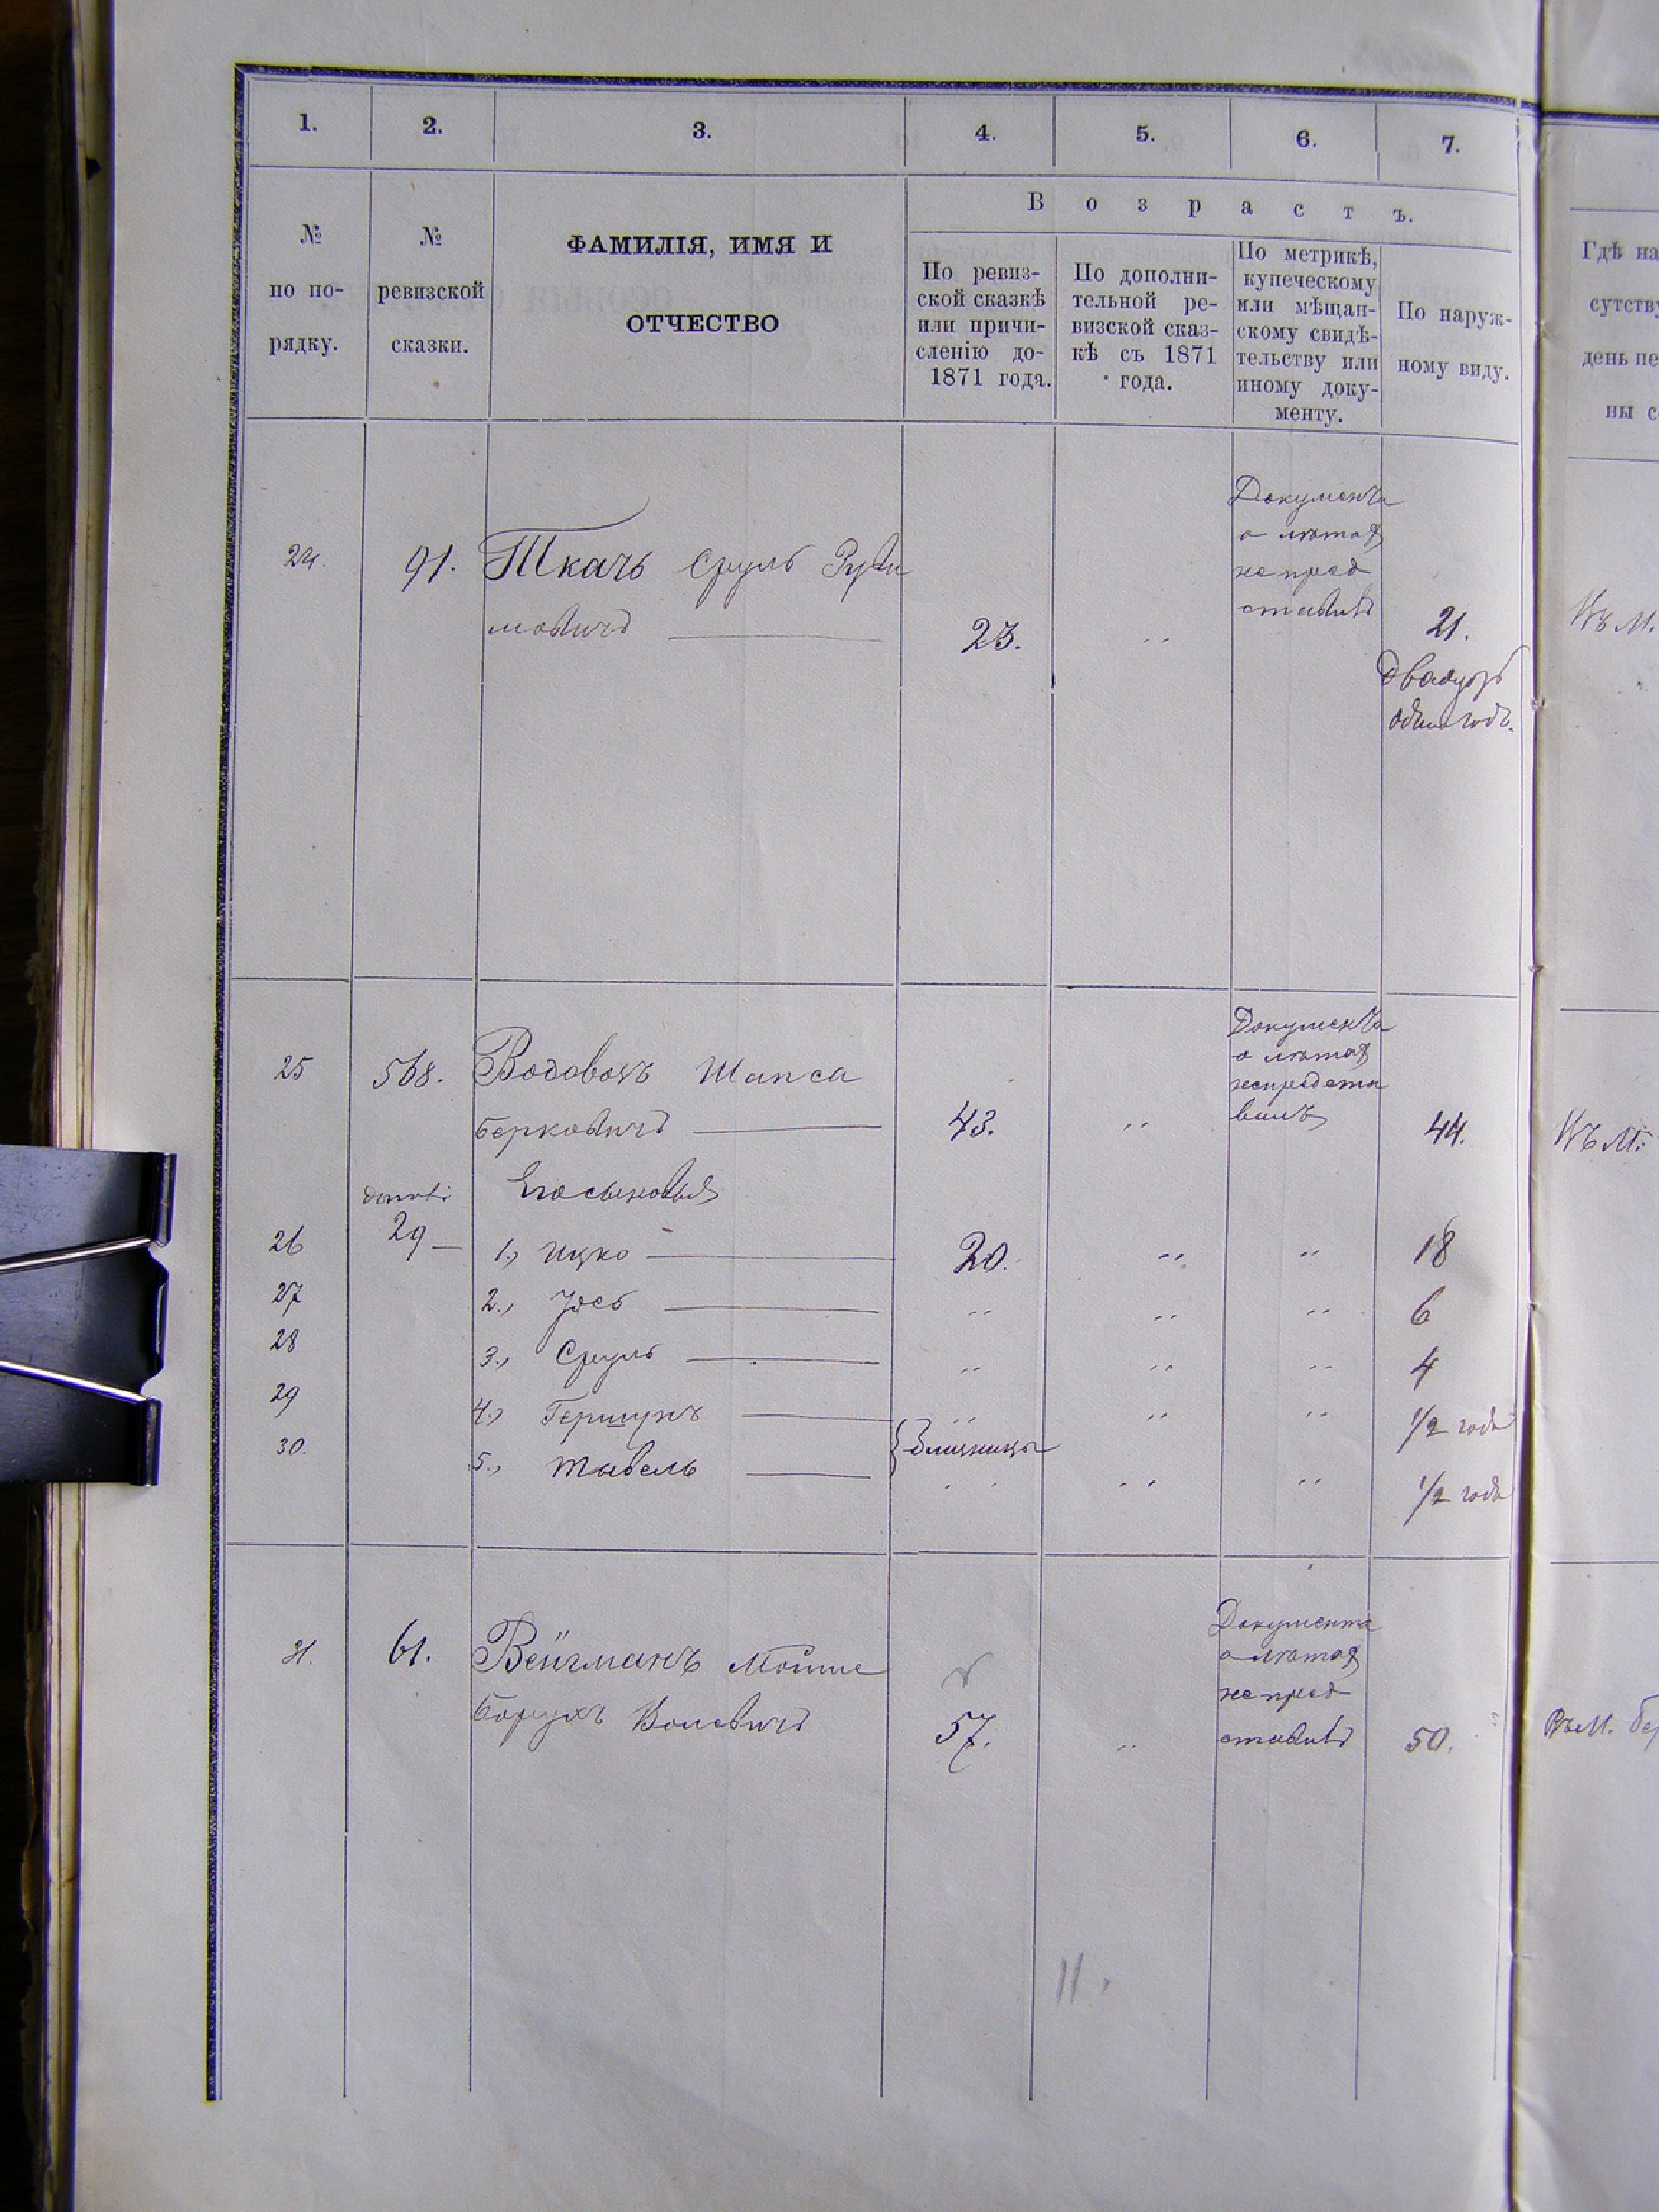 1. 2. 3. 4. 5. 6. 7.
Возрастъ.
№ по по-рядку.
№ ревизской сказки.
ФАМИЛІЯ, ИМЯ И
ОТЧЕСТВО
По ревиз-
ской сказкѣ
или причи-
сленію до-
1871 года.
По дополни-
тельной ре-
визской сказ-
кѣ съ 1871
года.
По метрикѣ,
купеческому
или мѣщан-
скому свидѣ-
тельству или
иному доку-
менту.
По наруж-
ному виду.
Гдѣ на
сутству
день пе
ны с
24. 91. Ткачь Сруль Руви
мовичъ 23. " 21.
Документа
о лѣтахъ
не пред
ставилъ
двадцать
одинъ годъ.
Въ М.
25 568. Водовозъ Шапса
Берковичъ 43. " 44.
Документа
о лѣтахъ
непредста
вилъ
Въ М.
Его сыновья
26 29 1., Ицко 20. " " 18
27 2., Іось " " " 6
28 3., Сруль " " " 4
29 4., Гершунъ " " " 1/2 года
близнецы
30. 5., Тавель " " " 1/2 года
31. 61. Вейгманъ Мошие
Борухъ Волевичъ 57. " 50.
Документа
о лѣтахъ
не пред
ставилъ
Въ М. Бер
11.